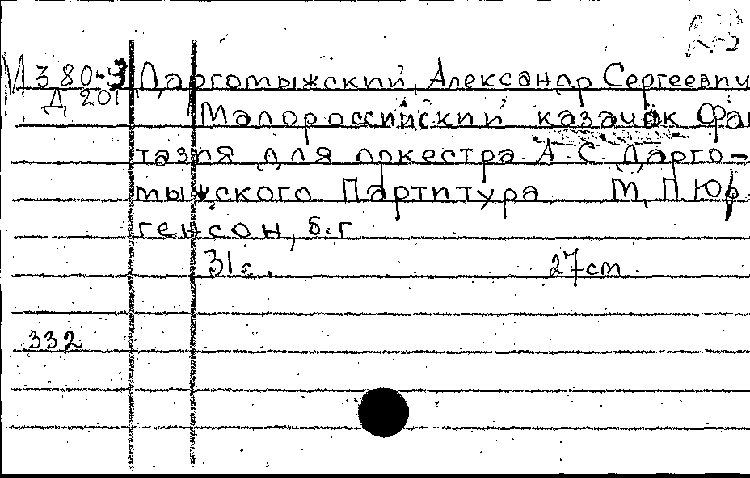 М 380-3 Даргомыжский, Александр Сергеевич
Д 201 Малороссийский казачок Фан
тазия для оркестра А С Дарго-
мыжского Партитура М, П. Юр
генсон, б.г
31с. 27cm
332